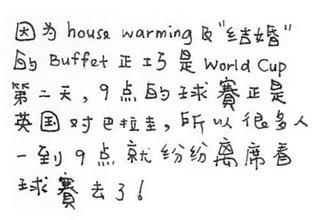 因为 house warming 及“结婚”
的 Buffet 正巧是 World Cup
第二天，9点的球賽正是
英国对巴拉圭，所以很多人
一到9点就纷纷离席看
球賽去了！